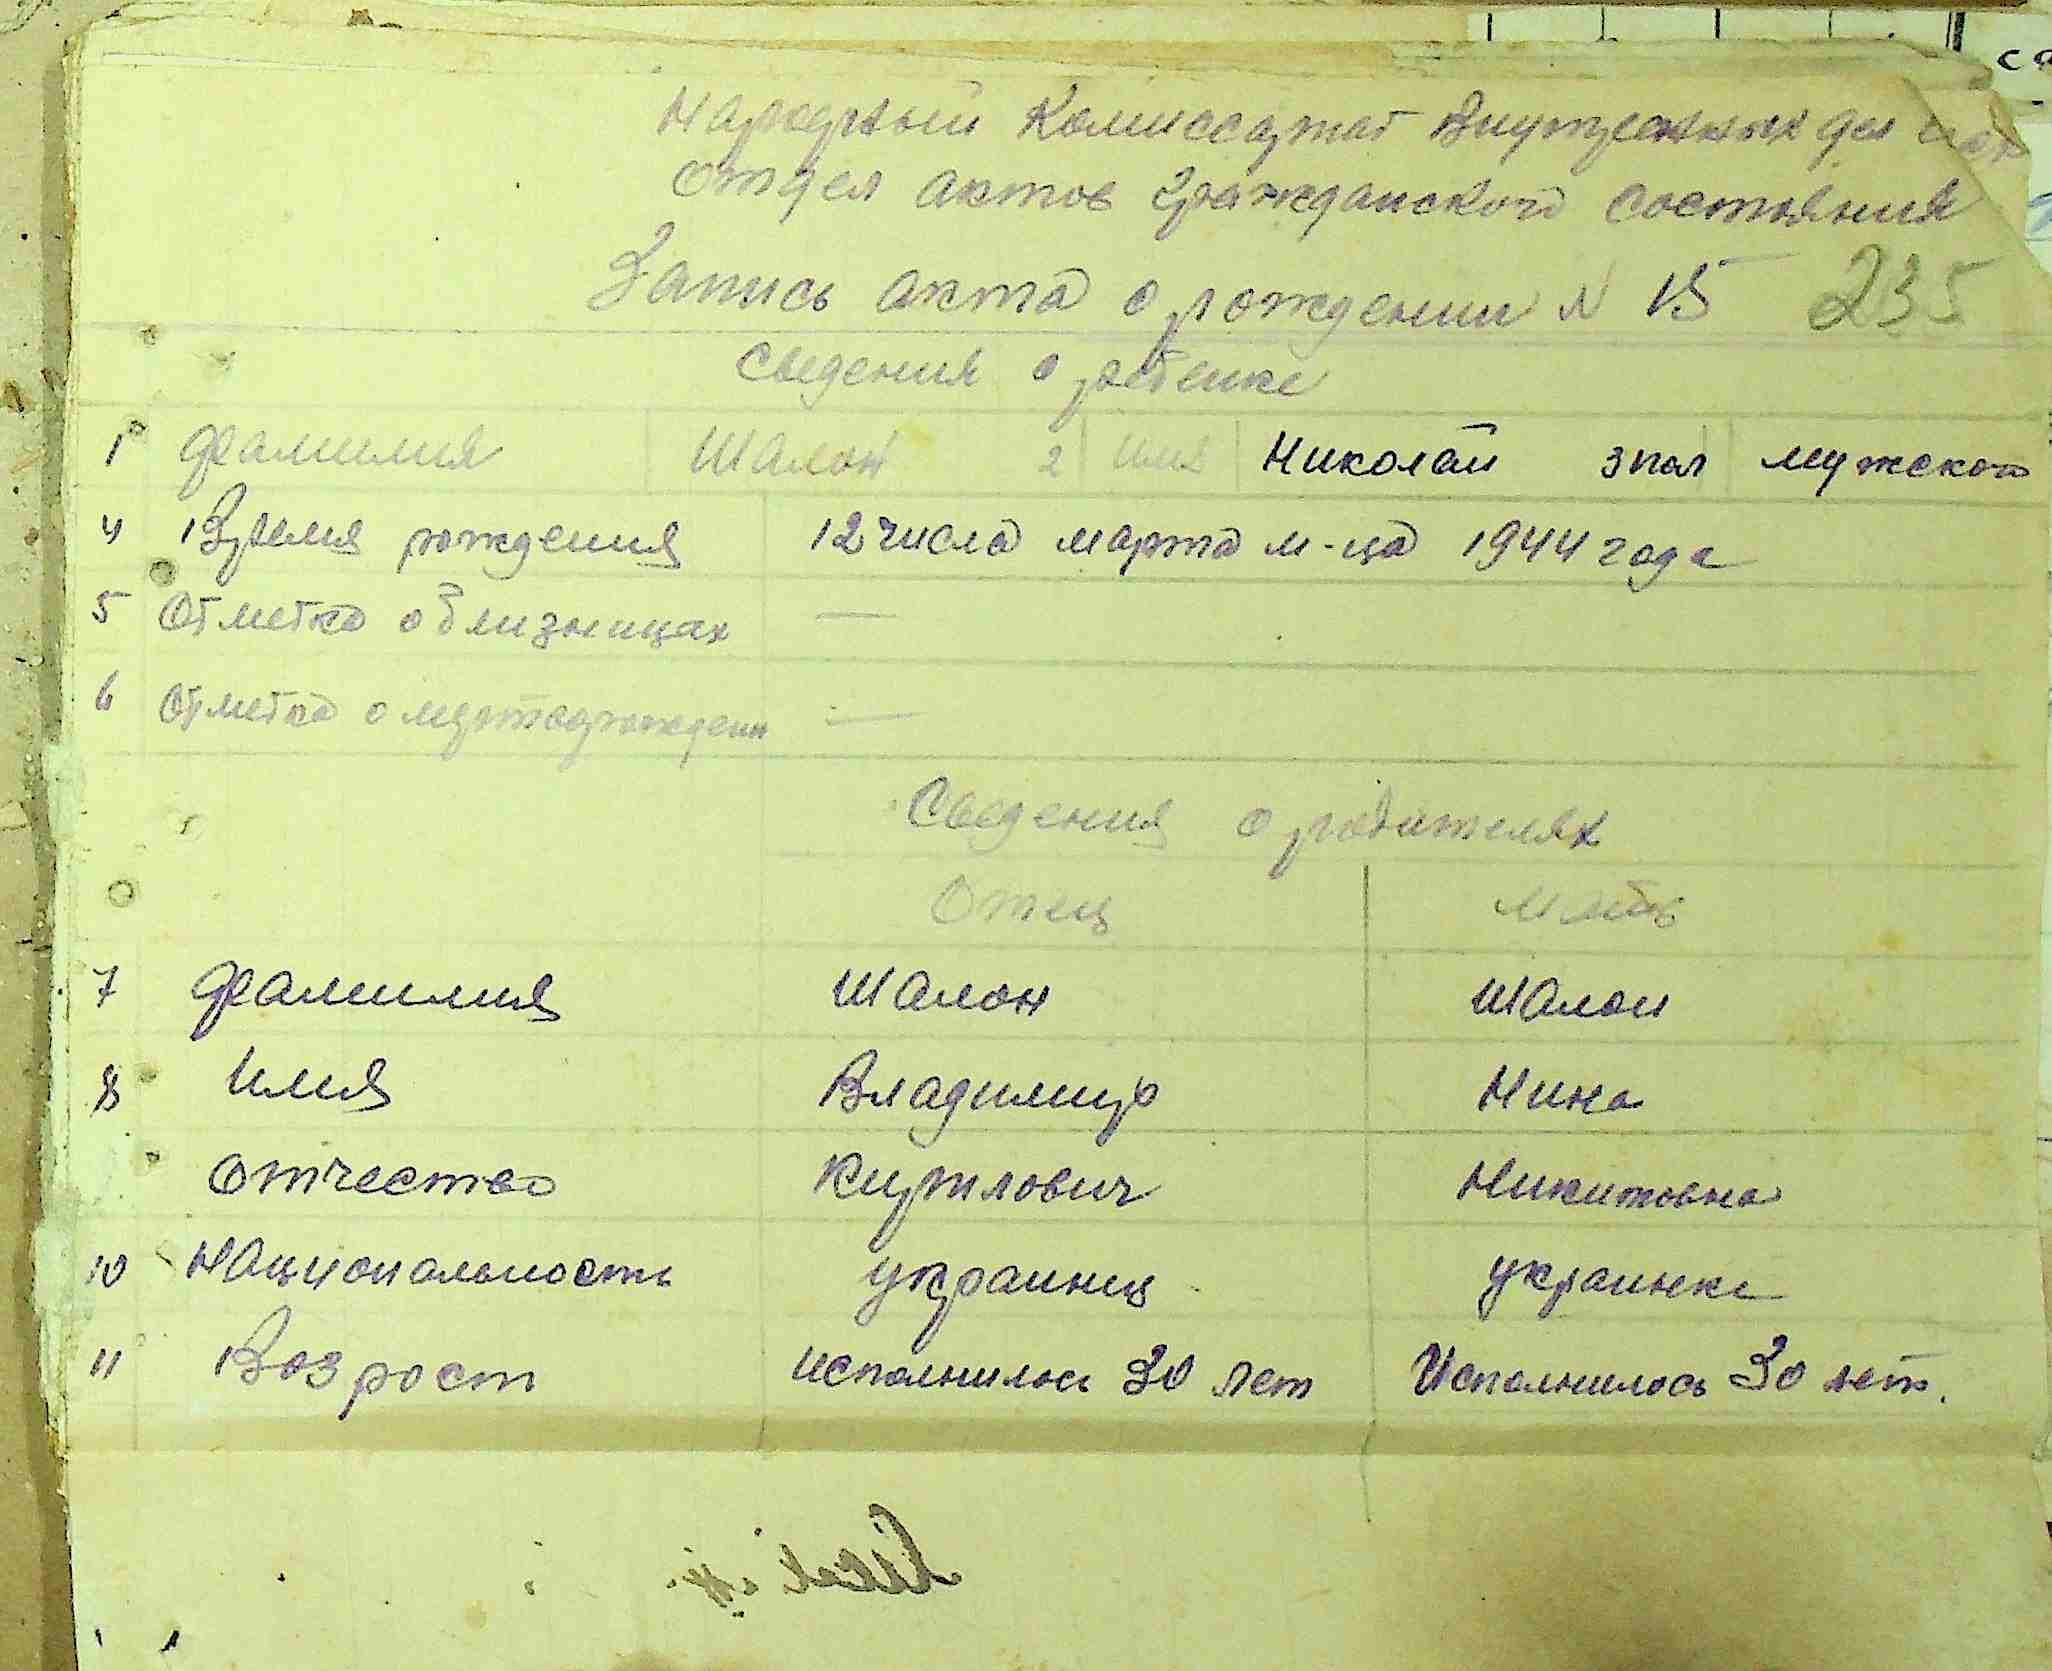 Народный Комиссариат Внутренних дел
Отдел актов Гражданского состояния
Запись акта о рождении N 15 235
Сведения о ребенке
1 фамилия Шалон 2 имя Николай 3 пол мужской
4 Время рождения 12 числа марта м-ца 1944 года
5 Отметка о близницах —
6 Отметка о мертворожден —
Сведения о родителях
Отец Мать
7 фамилия Шалон Шалон
8 Имя Владимир Нина
Отчество Кирилович Никитовна
10 Национальность украинец украинка
11 Возрост исполнилось 30 лет Исполнилось 30 лет.